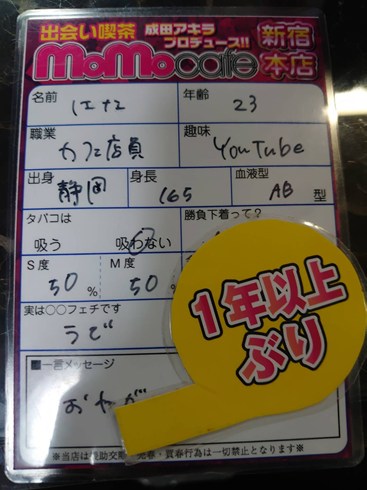 出会い喫茶 成田アキラ
プロデュース!!
MoMocafe 新宿
本店
名前 はな 年齢 23
職業 カフェ店員 趣味 YouTube
出身 静岡 身長 165 血液型 AB 型
タバコは 勝負下着って?
吸う 吸わない
S度 50 % M度 50 %
実は○○フェチです
うで
1年以上
ぶり
■一言メッセージ
おねが
※当店は援助交際・売春・買春行為は一切禁止となります※